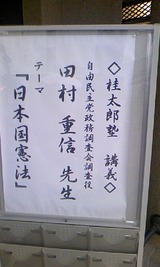 ◇桂太郎塾 講義◇
自由民主党政務調査会調査役
田村 重信 先生
テーマ
「日本国憲法」